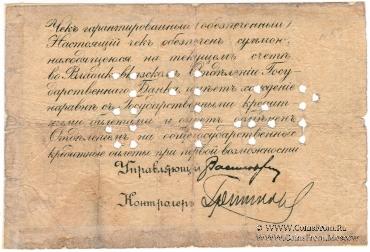 Чекъ гарантированный (обезпеченный)
Настоящій чекъ обезпеченъ суммой,
находящеюся на текущемъ счетѣ
во Владикавказскомъ Отдѣленіи Госу-
дарственнаго Банка, имѣетъ хожденіе
наравнѣ съ Государственными кредит-
ными билетами и
Отдѣленіемъ на общегосударственные
кредитные билеты при первой возможности
Управляющій
Контролеръ
www.CoinsFrom.Ru
www.CoinsFrom.Moscow